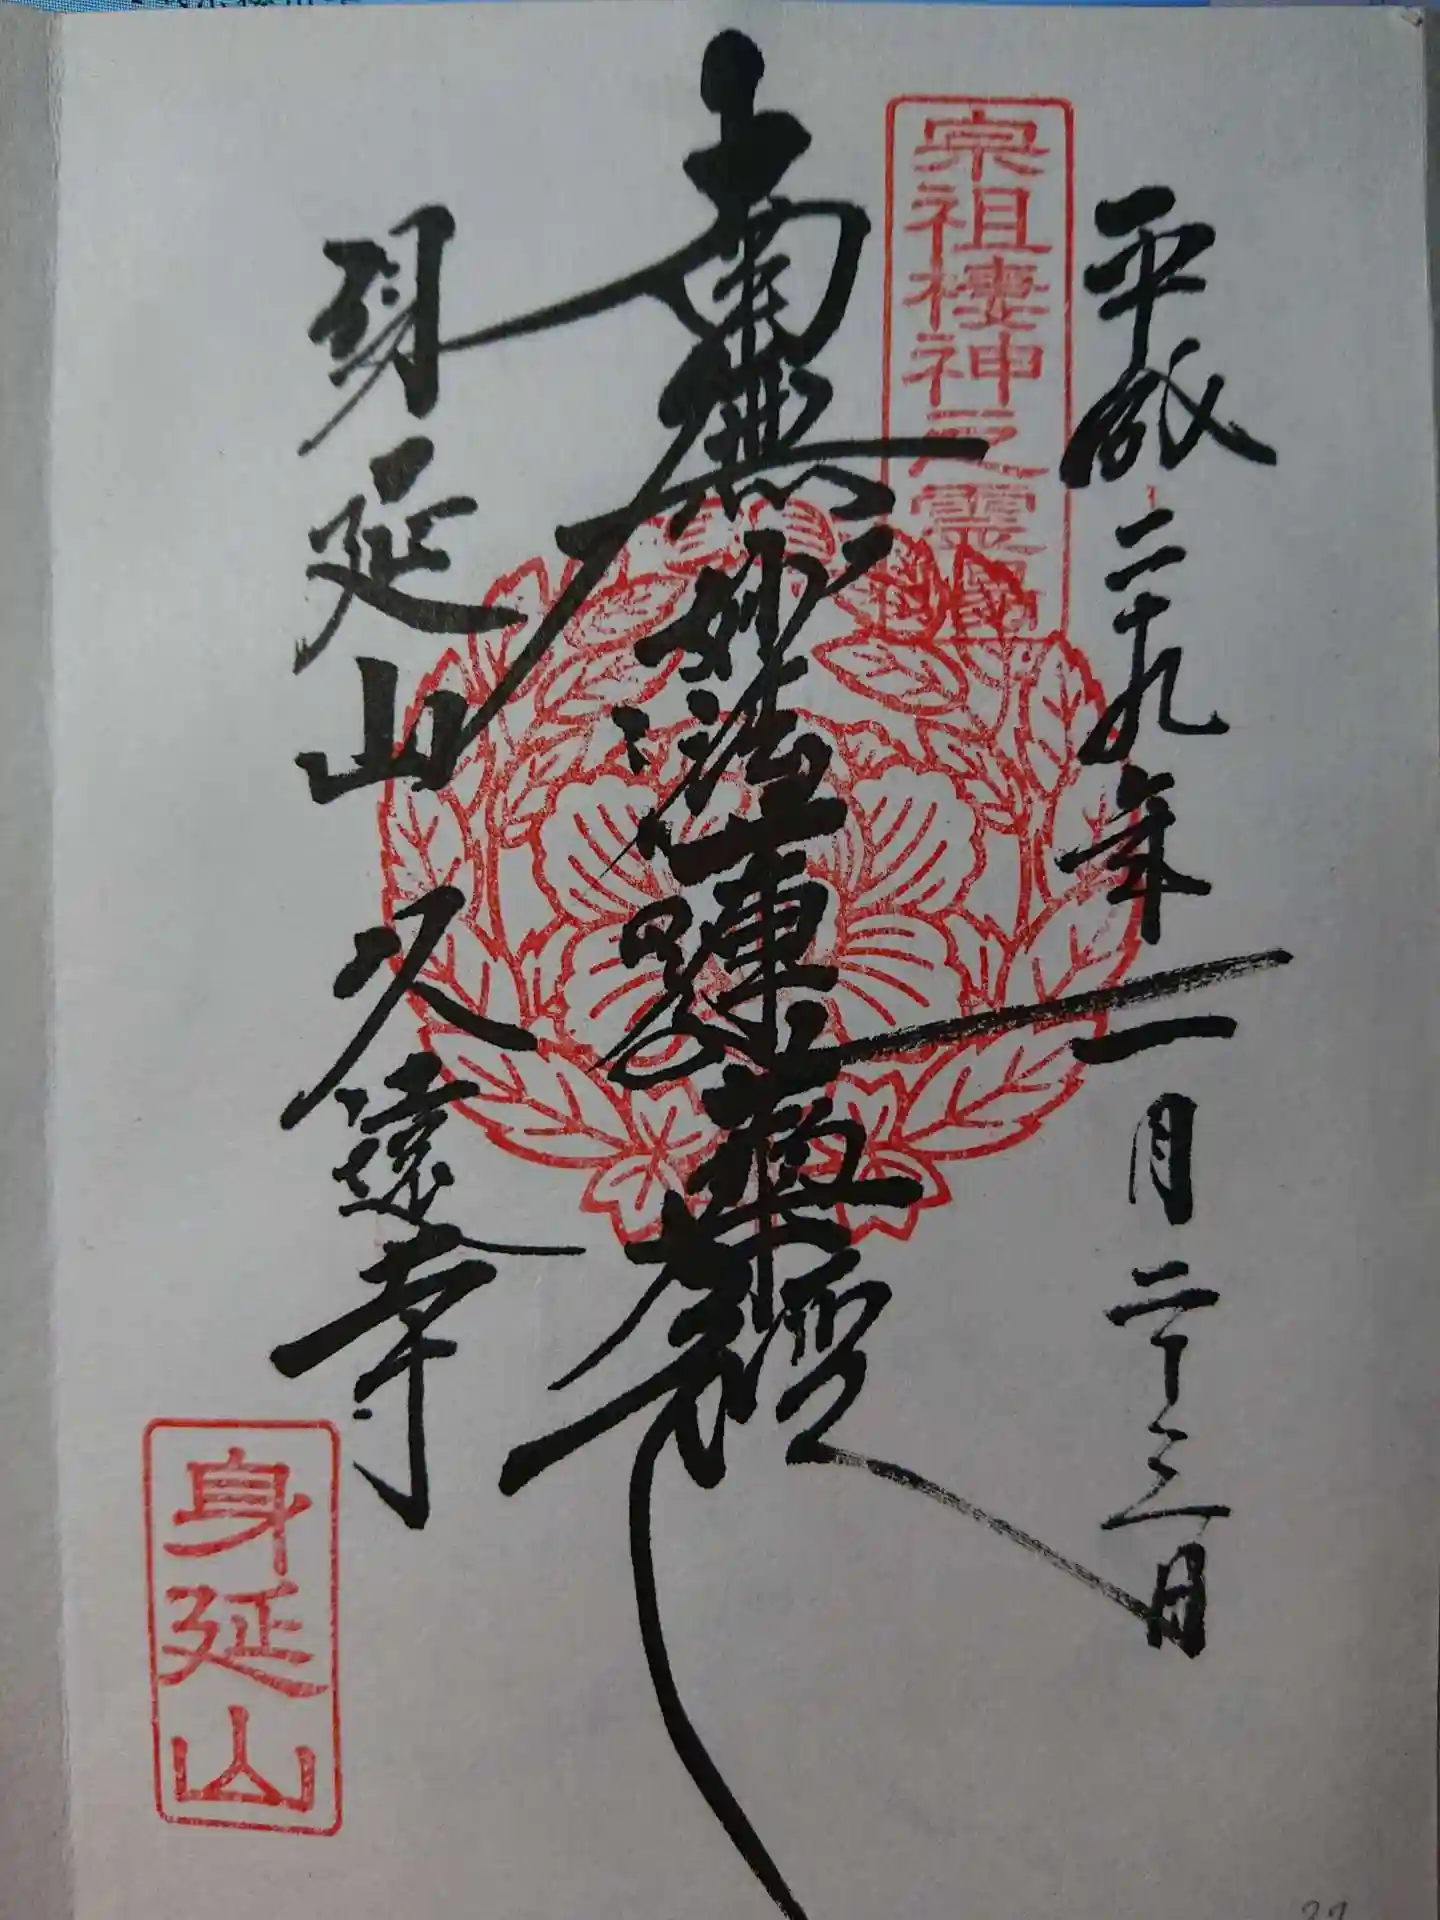 平成二十九年一月二十三日
宗祖棲神之霊
南無妙法蓮華経
身延山久遠寺
身延山